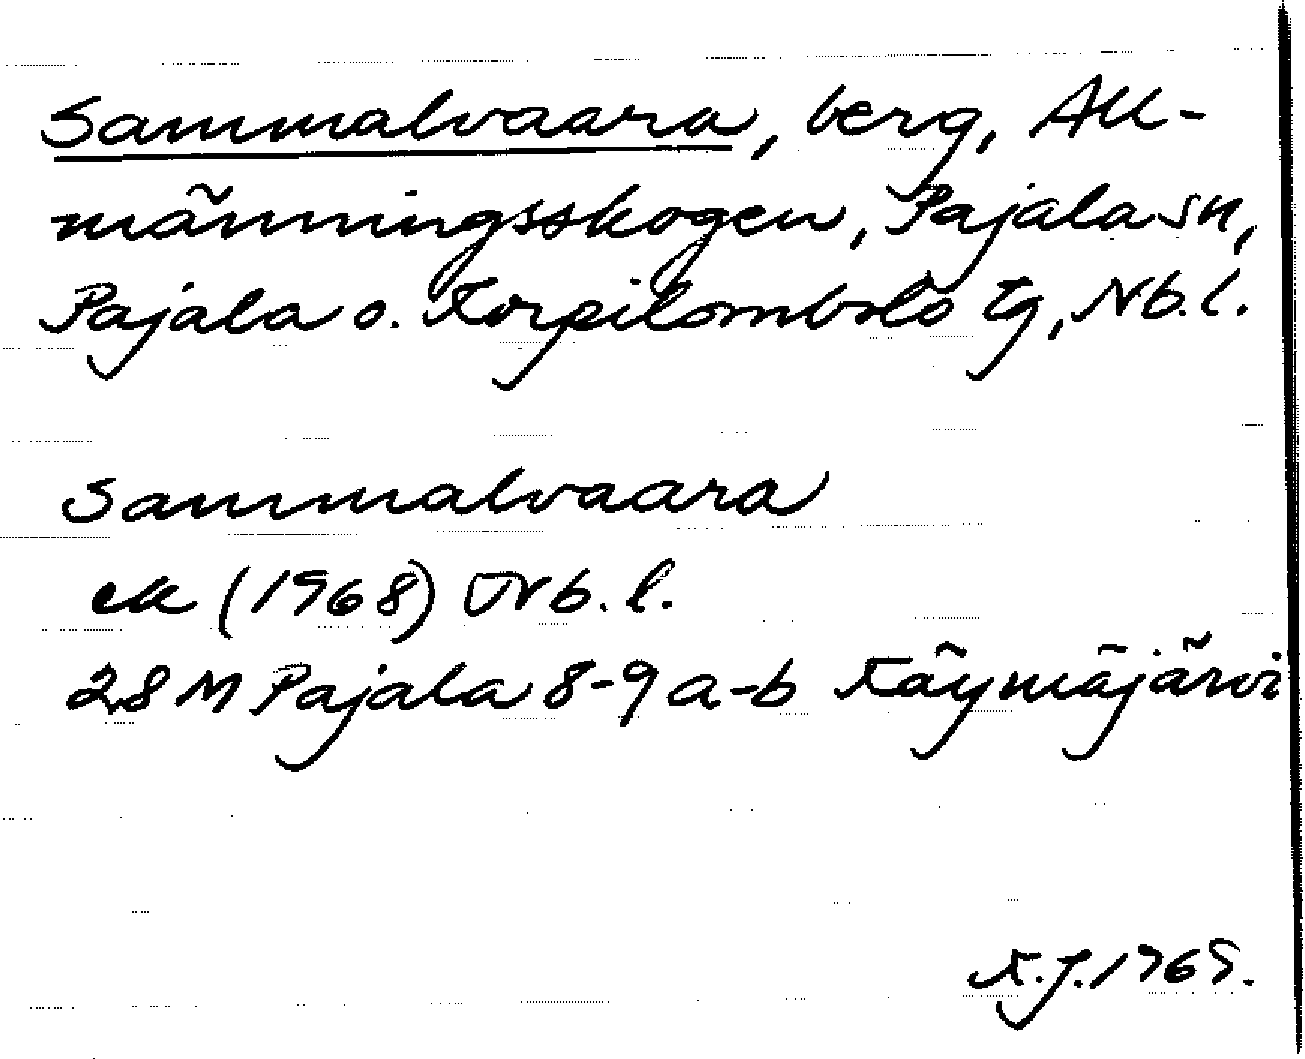 Sammalvaara, berg, All-
männingsskogen, Pajala sn,
Pajala o. Korpilombolo tg, Nb.l.
Sammalvaara
ek (1968) Nb. l.
28 M Pajala 8-9 a-b Käymäjärvi
K.J. 1969.